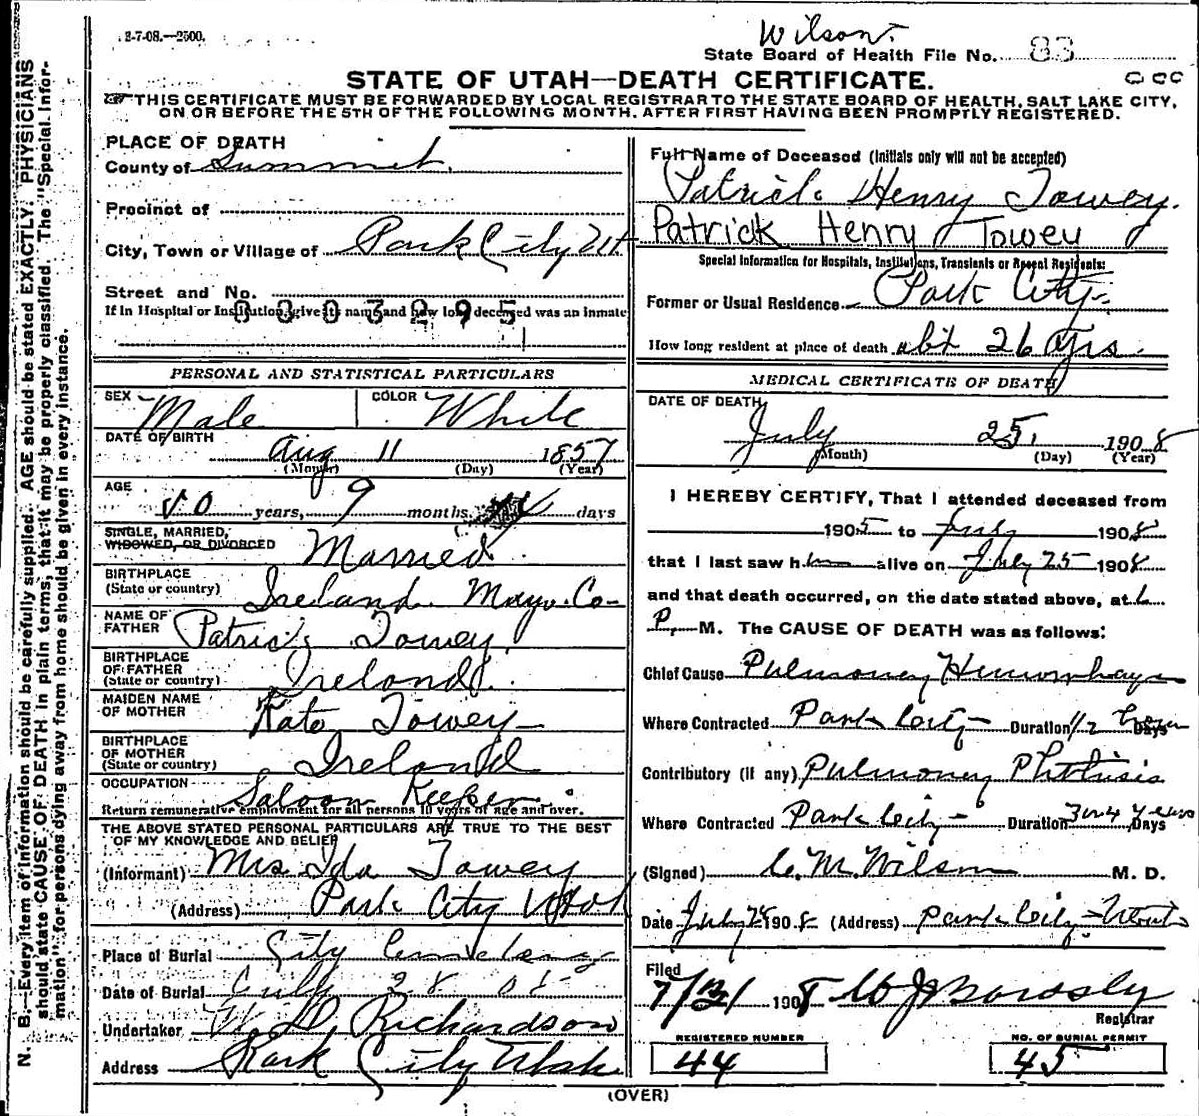 2-7-08.—2500.
Wilson.
State Board of Health File No. 83
STATE OF UTAH—DEATH CERTIFICATE.
THIS CERTIFICATE MUST BE FORWARDED BY LOCAL REGISTRAR TO THE STATE BOARD OF HEALTH, SALT LAKE CITY,
ON OR BEFORE THE 5TH OF THE FOLLOWING MONTH, AFTER FIRST HAVING BEEN PROMPTLY REGISTERED.
N. B.—Every item of information should be carefully supplied. AGE should be stated EXACTLY. PHYSICIANS
should state CAUSE OF DEATH in plain terms, that it may be properly classified. The "Special Infor-
mation" for persons dying away from home should be given in every instance.
PLACE OF DEATH
County of Summit.
Precinct of
City, Town or Village of Park City Ut
Street and No.
If in Hospital or Institution, give its name and how long deceased was an inmate
0303295
PERSONAL AND STATISTICAL PARTICULARS
SEX Male COLOR White
DATE OF BIRTH
Aug 11 1857
(Month) (Day) (Year)
AGE
50 years, 9 months, days
SINGLE, MARRIED,
WIDOWED, OR DIVORCED Married
BIRTHPLACE
(State or country) Ireland Mayo Co-
NAME OF
FATHER Patrick Towey
BIRTHPLACE
OF FATHER
(State or country) Ireland.
MAIDEN NAME
OF MOTHER Kate Towey
BIRTHPLACE
OF MOTHER
(State or country) Ireland
OCCUPATION Saloon Keeper
Return remunerative employment for all persons 10 years of age and over.
THE ABOVE STATED PERSONAL PARTICULARS ARE TRUE TO THE BEST
OF MY KNOWLEDGE AND BELIEF
(Informant) Mrs Ida Towey
(Address) Park City Utah
Place of Burial City Cemetery
Date of Burial July 28 08
Undertaker W. D. Richardson
Address Park City Utah
Full Name of Deceased (Initials only will not be accepted)
Patrick Henry Towey.
Patrick Henry Towey
Special Information for Hospitals, Institutions, Transients or Recent Residents:
Former or Usual Residence Park City
How long resident at place of death abt 26 yrs.
MEDICAL CERTIFICATE OF DEATH
DATE OF DEATH
July 25, 1908
(Month) (Day) (Year)
I HEREBY CERTIFY, That I attended deceased from
1905 to July 1908
that I last saw him alive on July 25 1908
and that death occurred, on the date stated above, at
P. M. The CAUSE OF DEATH was as follows:
Chief Cause Pulmonary Hemorrhage
Where Contracted Park City Duration 1/2 Days
Contributory (if any) Pulmonary Phthisis
Where Contracted Park City Duration 3 or 4 years Days
(Signed) C. M. Wilson M. D.
Date July 1908 (Address) Park City Utah
Filed
7/31 1908
Registrar
REGISTERED NUMBER NO. OF BURIAL PERMIT
44 45
(OVER)